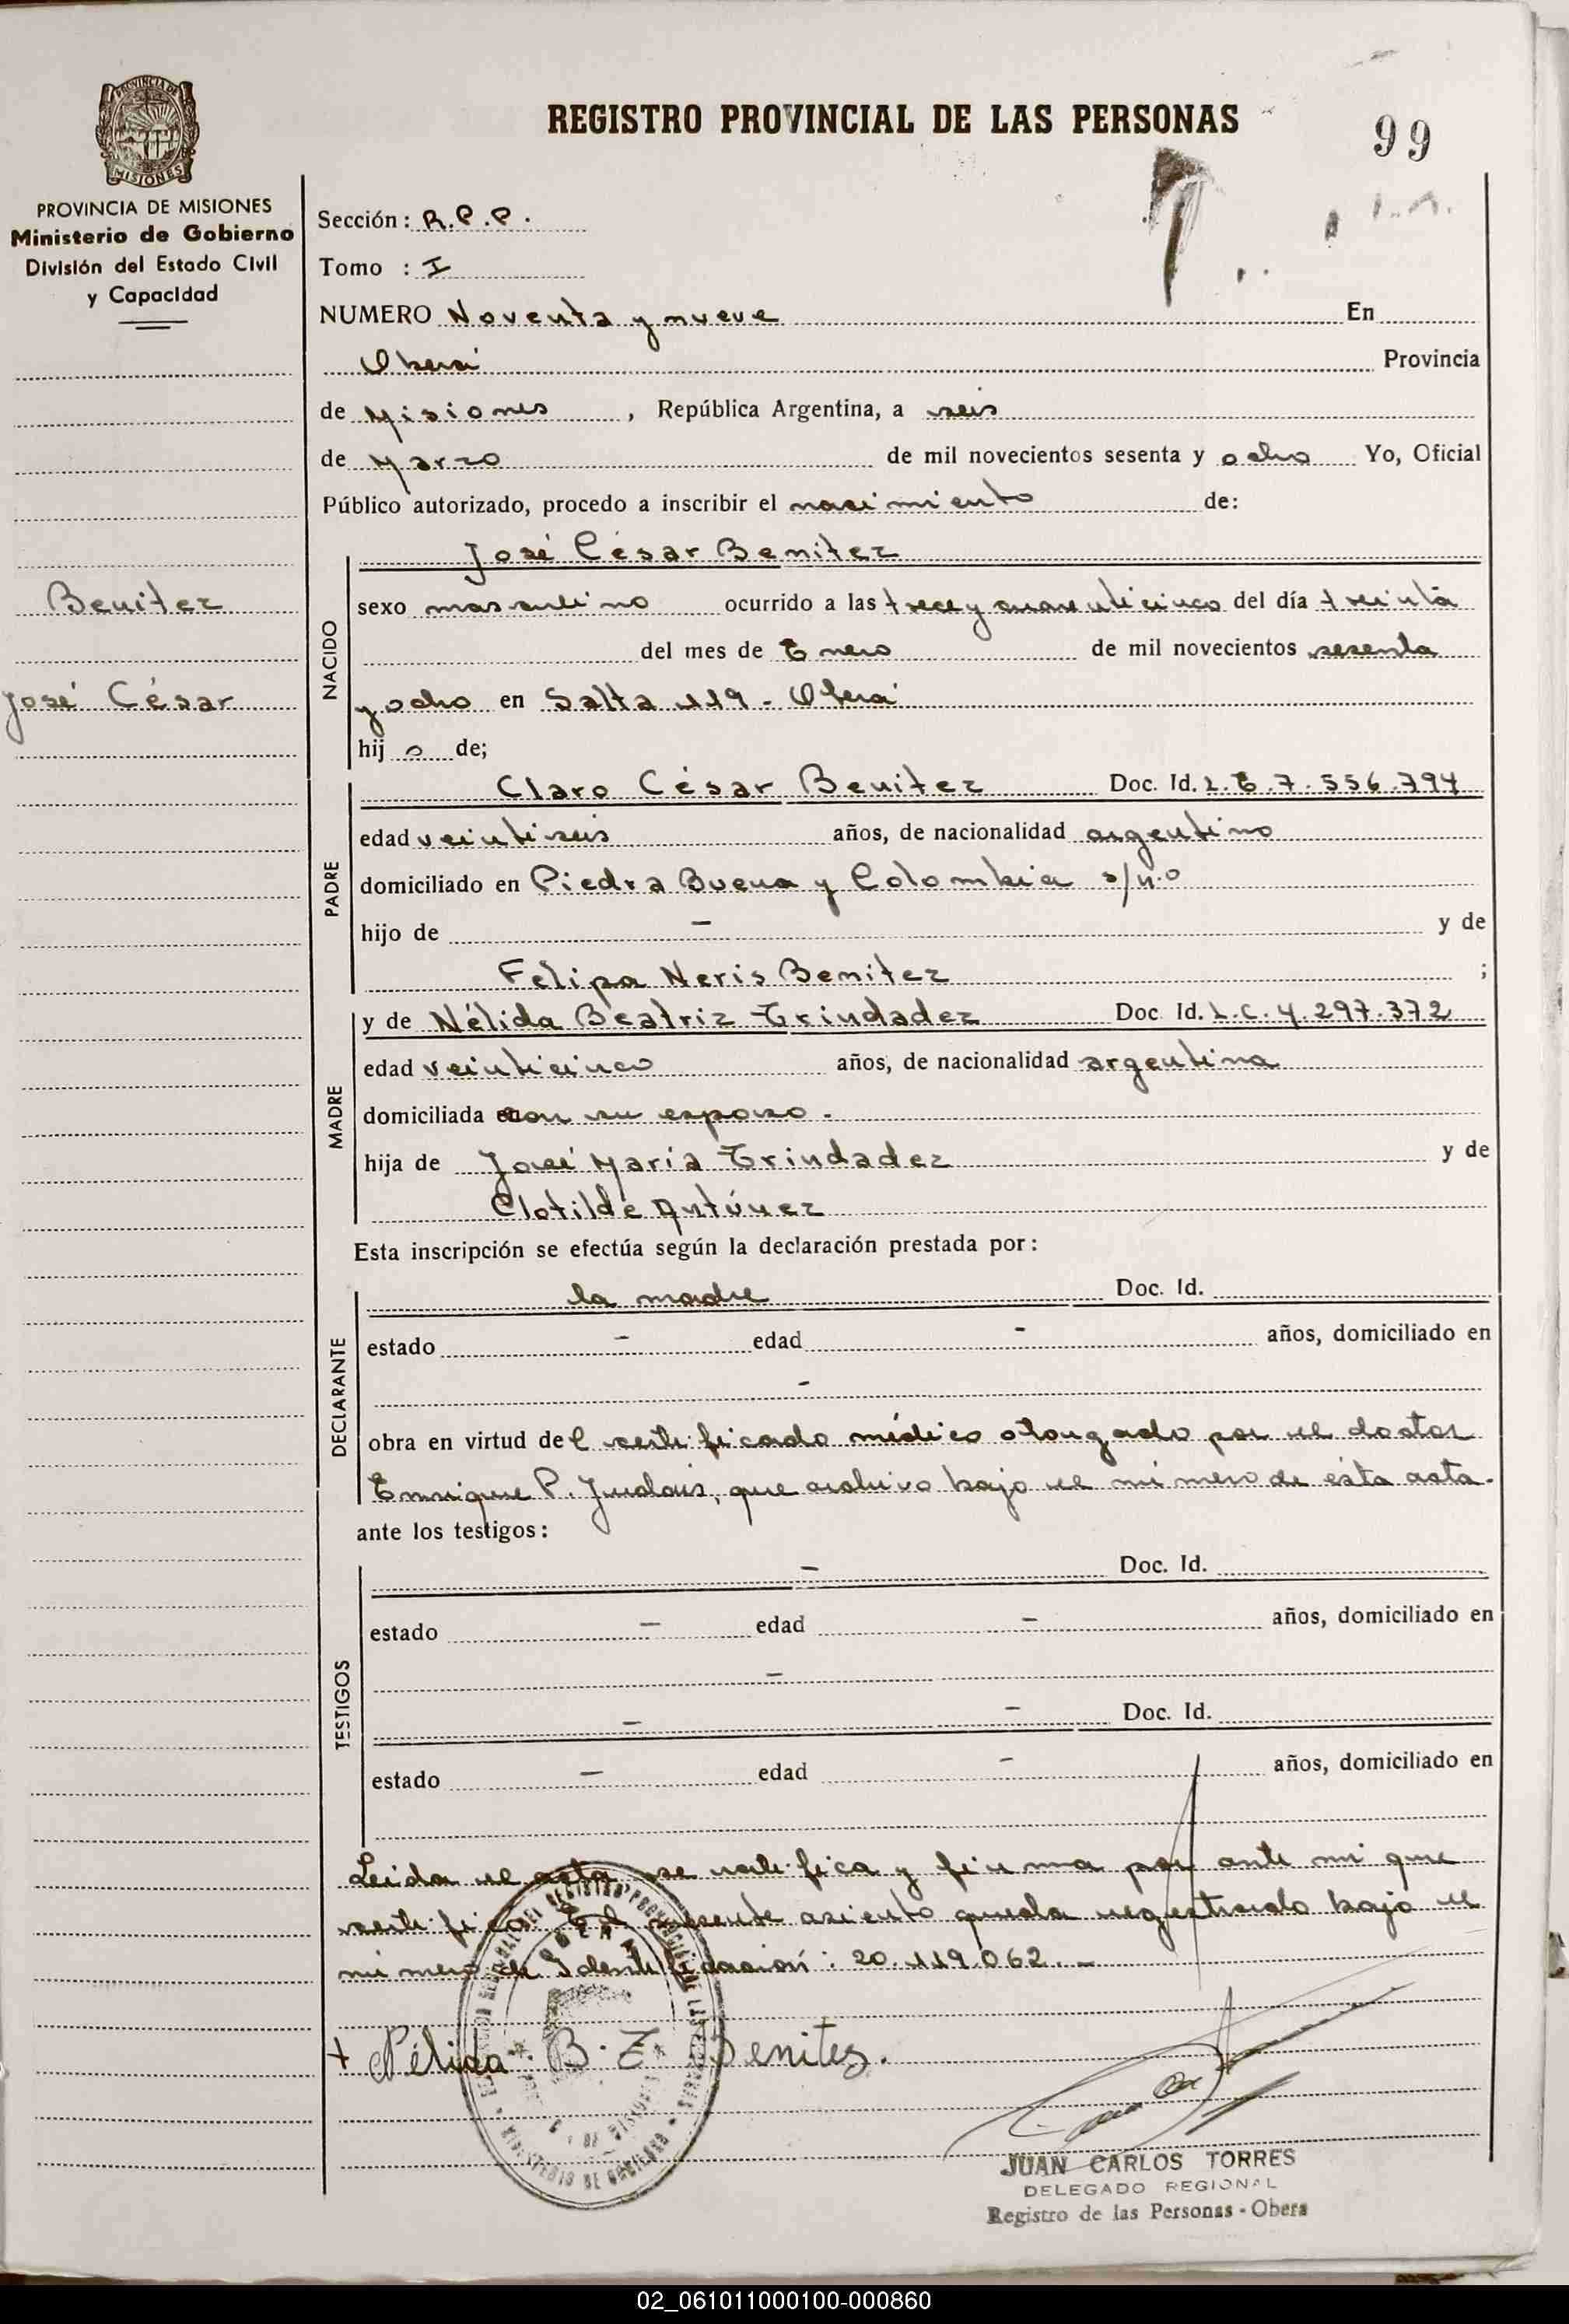 REGISTRO PROVINCIAL DE LAS PERSONAS
99
MISIONES
PROVINCIA DE MISIONES
Ministerio de Gobierno
División del Estado Civil
y Capacidad
Sección: R.P.P.
Tomo : I
NUMERO Noventa y nueve En
Oberá Provincia
de Misiones, República Argentina, a seis
de Marzo de mil novecientos sesenta y ocho Yo, Oficial
Público autorizado, procedo a inscribir el nacimiento de:
José César Benitez
Benitez
José César
NACIDO
sexo masculino ocurrido a las trece y cuarenticinco del día treinta
del mes de Enero de mil novecientos sesenta
y ocho en Salta 119 - Oberá
hij o de;
PADRE
Claro César Benitez Doc. Id. L.E.7.556.794
edad veintiseis años, de nacionalidad argentino
domiciliado en Piedra Buena y Colombia s/n.o
hijo de - y de
Felipa Neris Benitez ;
MADRE
y de Nélida Beatriz Trindadez Doc Id. L.C.4.297.372
edad veinticinco años, de nacionalidad argentina
domiciliada con su esposo.
hija de José María Trindadez y de
Clotilde Antúnez
Esta inscripción se efectúa según la declaración prestada por:
DECLARANTE
la madre Doc. Id.
estado - edad - años, domiciliado en
-
obra en virtud del certificado médico otorgado por el doctor
Enrique P. que archivo bajo el número de ésta acta.
ante los testigos:
TESTIGOS
- Doc. Id.
estado - edad - años, domiciliado en
-
- - Doc. Id.
estado - edad - años, domiciliado en
Leída el acta se ratifica y firma por ante mi que
certifico. El presente asiento queda registrado bajo el
número de Identificación: 20.119.062.-
+ Nélida B. T. Benites.
JUAN CARLOS TORRES
DELEGADO REGIONAL
Registro de las Personas - Obera
02_061011000100-000860